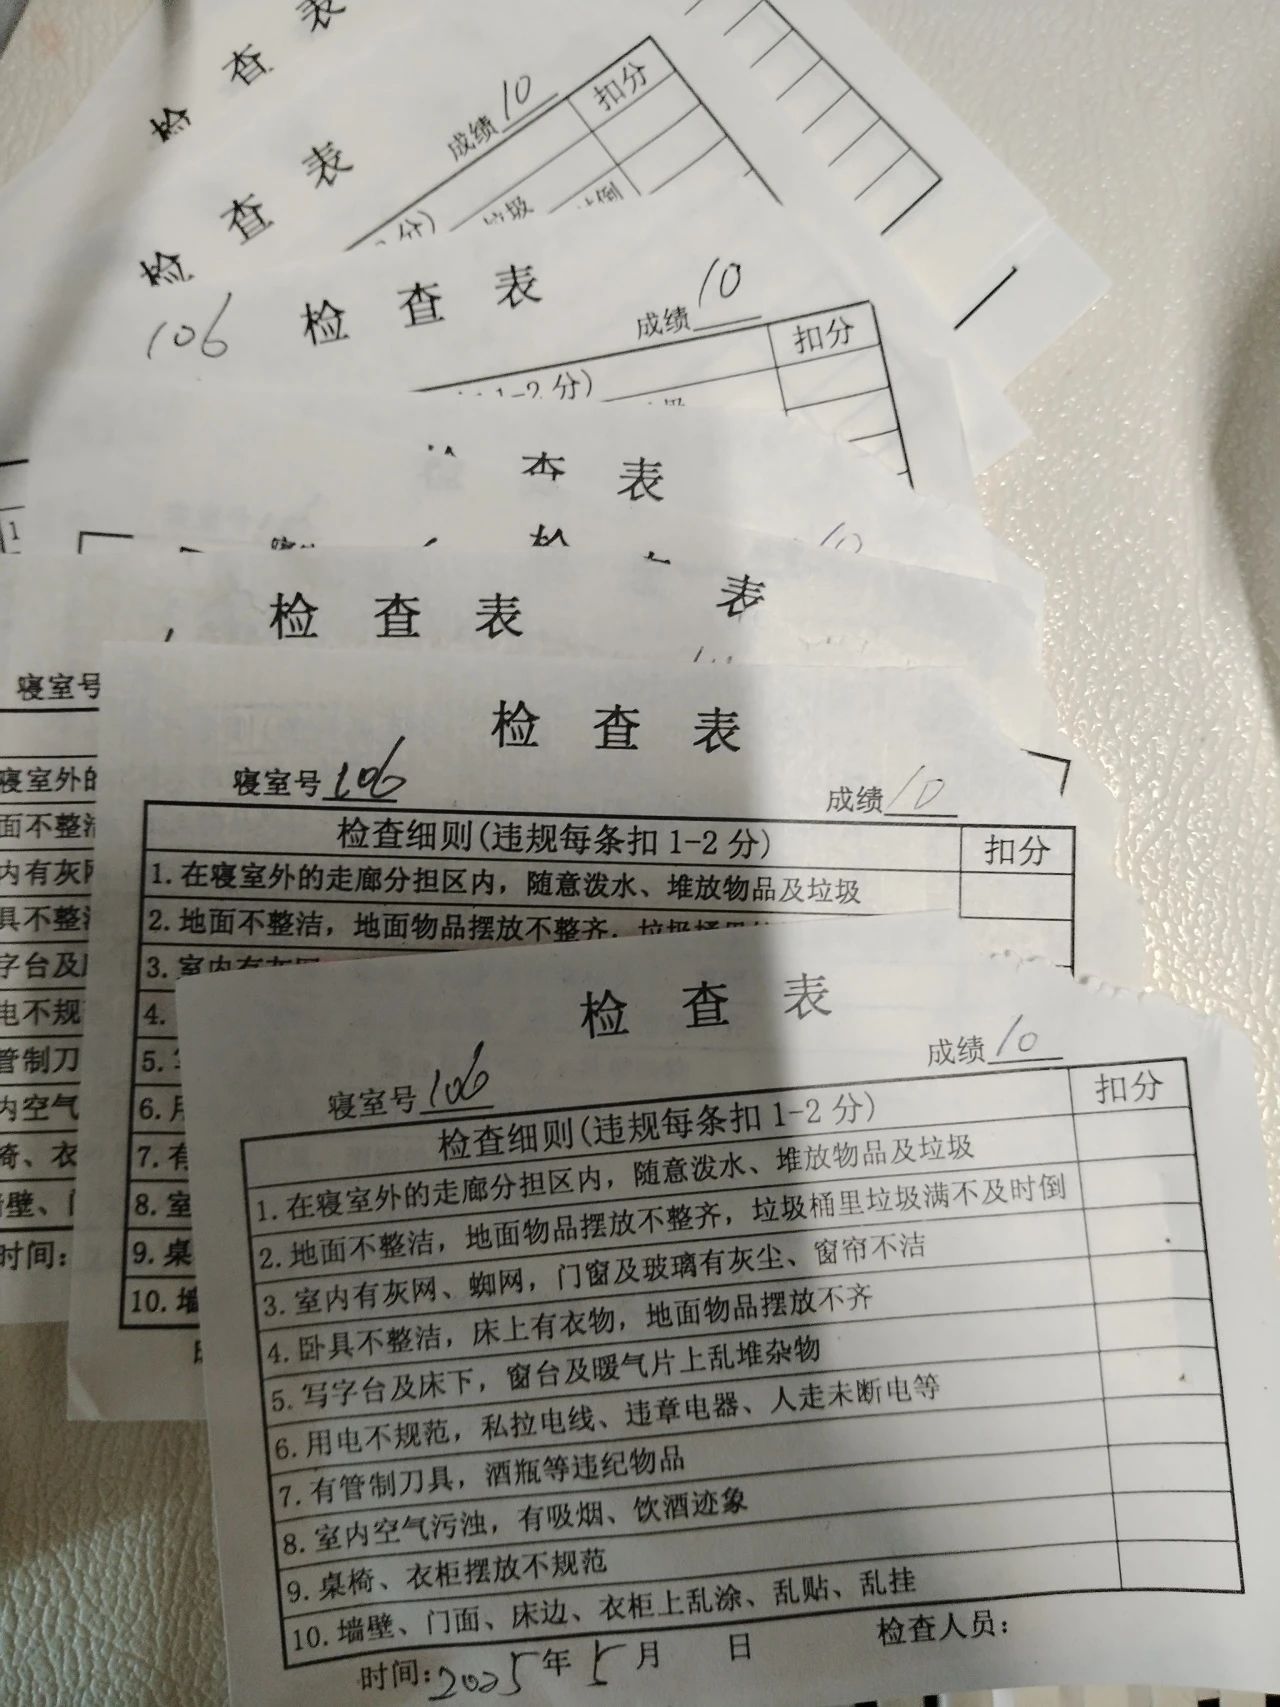 表
检 查
检 查 表
成绩 10
扣分
分)
垃圾
倒
106 检 查 表
成绩 10
扣分
1-2 分)
表
10
检 查 表
表
寝室号
寝室外的
面不整洁
内有灰网
具不整洁
字台及
电不规
管制刀
内空气
椅、衣
墙壁、门
时间:
检 查 表
寝室号 106
成绩 10
检查细则(违规每条扣 1-2 分)
扣分
1. 在寝室外的走廊分担区内，随意泼水、堆放物品及垃圾
2. 地面不整洁，地面物品摆放不整齐，垃圾桶里
3. 室内有灰网
4.
5.
6. 用
7. 有
8. 室
9. 桌
10. 墙
检 查 表
寝室号 106
成绩 10
检查细则(违规每条扣 1-2 分)
扣分
1. 在寝室外的走廊分担区内，随意泼水、堆放物品及垃圾
2. 地面不整洁，地面物品摆放不整齐，垃圾桶里垃圾满不及时倒
3. 室内有灰网、蜘网，门窗及玻璃有灰尘、窗帘不洁
4. 卧具不整洁，床上有衣物，地面物品摆放不齐
5. 写字台及床下，窗台及暖气片上乱堆杂物
6. 用电不规范，私拉电线、违章电器、人走未断电等
7. 有管制刀具，酒瓶等违纪物品
8. 室内空气污浊，有吸烟、饮酒迹象
9. 桌椅、衣柜摆放不规范
10. 墙壁、门面、床边、衣柜上乱涂、乱贴、乱挂
时间: 2025 年 5 月 日 检查人员: